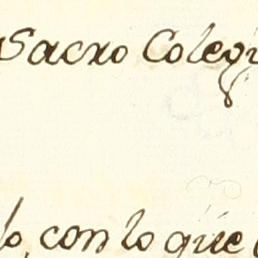 Sacro Colegi
lo, con lo que